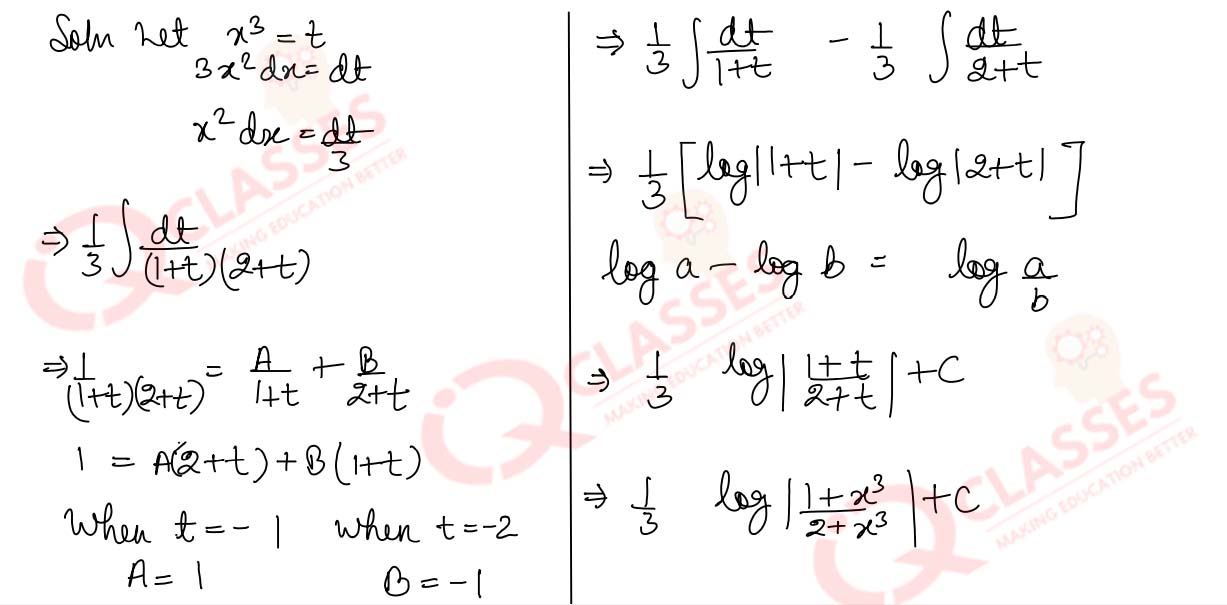 Soln Let x³ = t
3x²dx = dt
x²dx = dt/3
⇒ 1/3 ∫ dt/(1+t)(2+t)
⇒ 1/(1+t)(2+t) = A/1+t + B/2+t
1 = A(2+t) + B(1+t)
When t = -1 when t = -2
A = 1 B = -1
⇒ 1/3 ∫ dt/1+t - 1/3 ∫ dt/2+t
⇒ 1/3 [log|1+t| - log|2+t|]
log a - log b = log a/b
⇒ 1/3 log|1+t/2+t| + C
⇒ 1/3 log|1+x³/2+x³| + C
CLASSES
MAKING EDUCATION BETTER
CLASSES
MAKING EDUCATION BETTER
CLASSES
MAKING EDUCATION BETTER